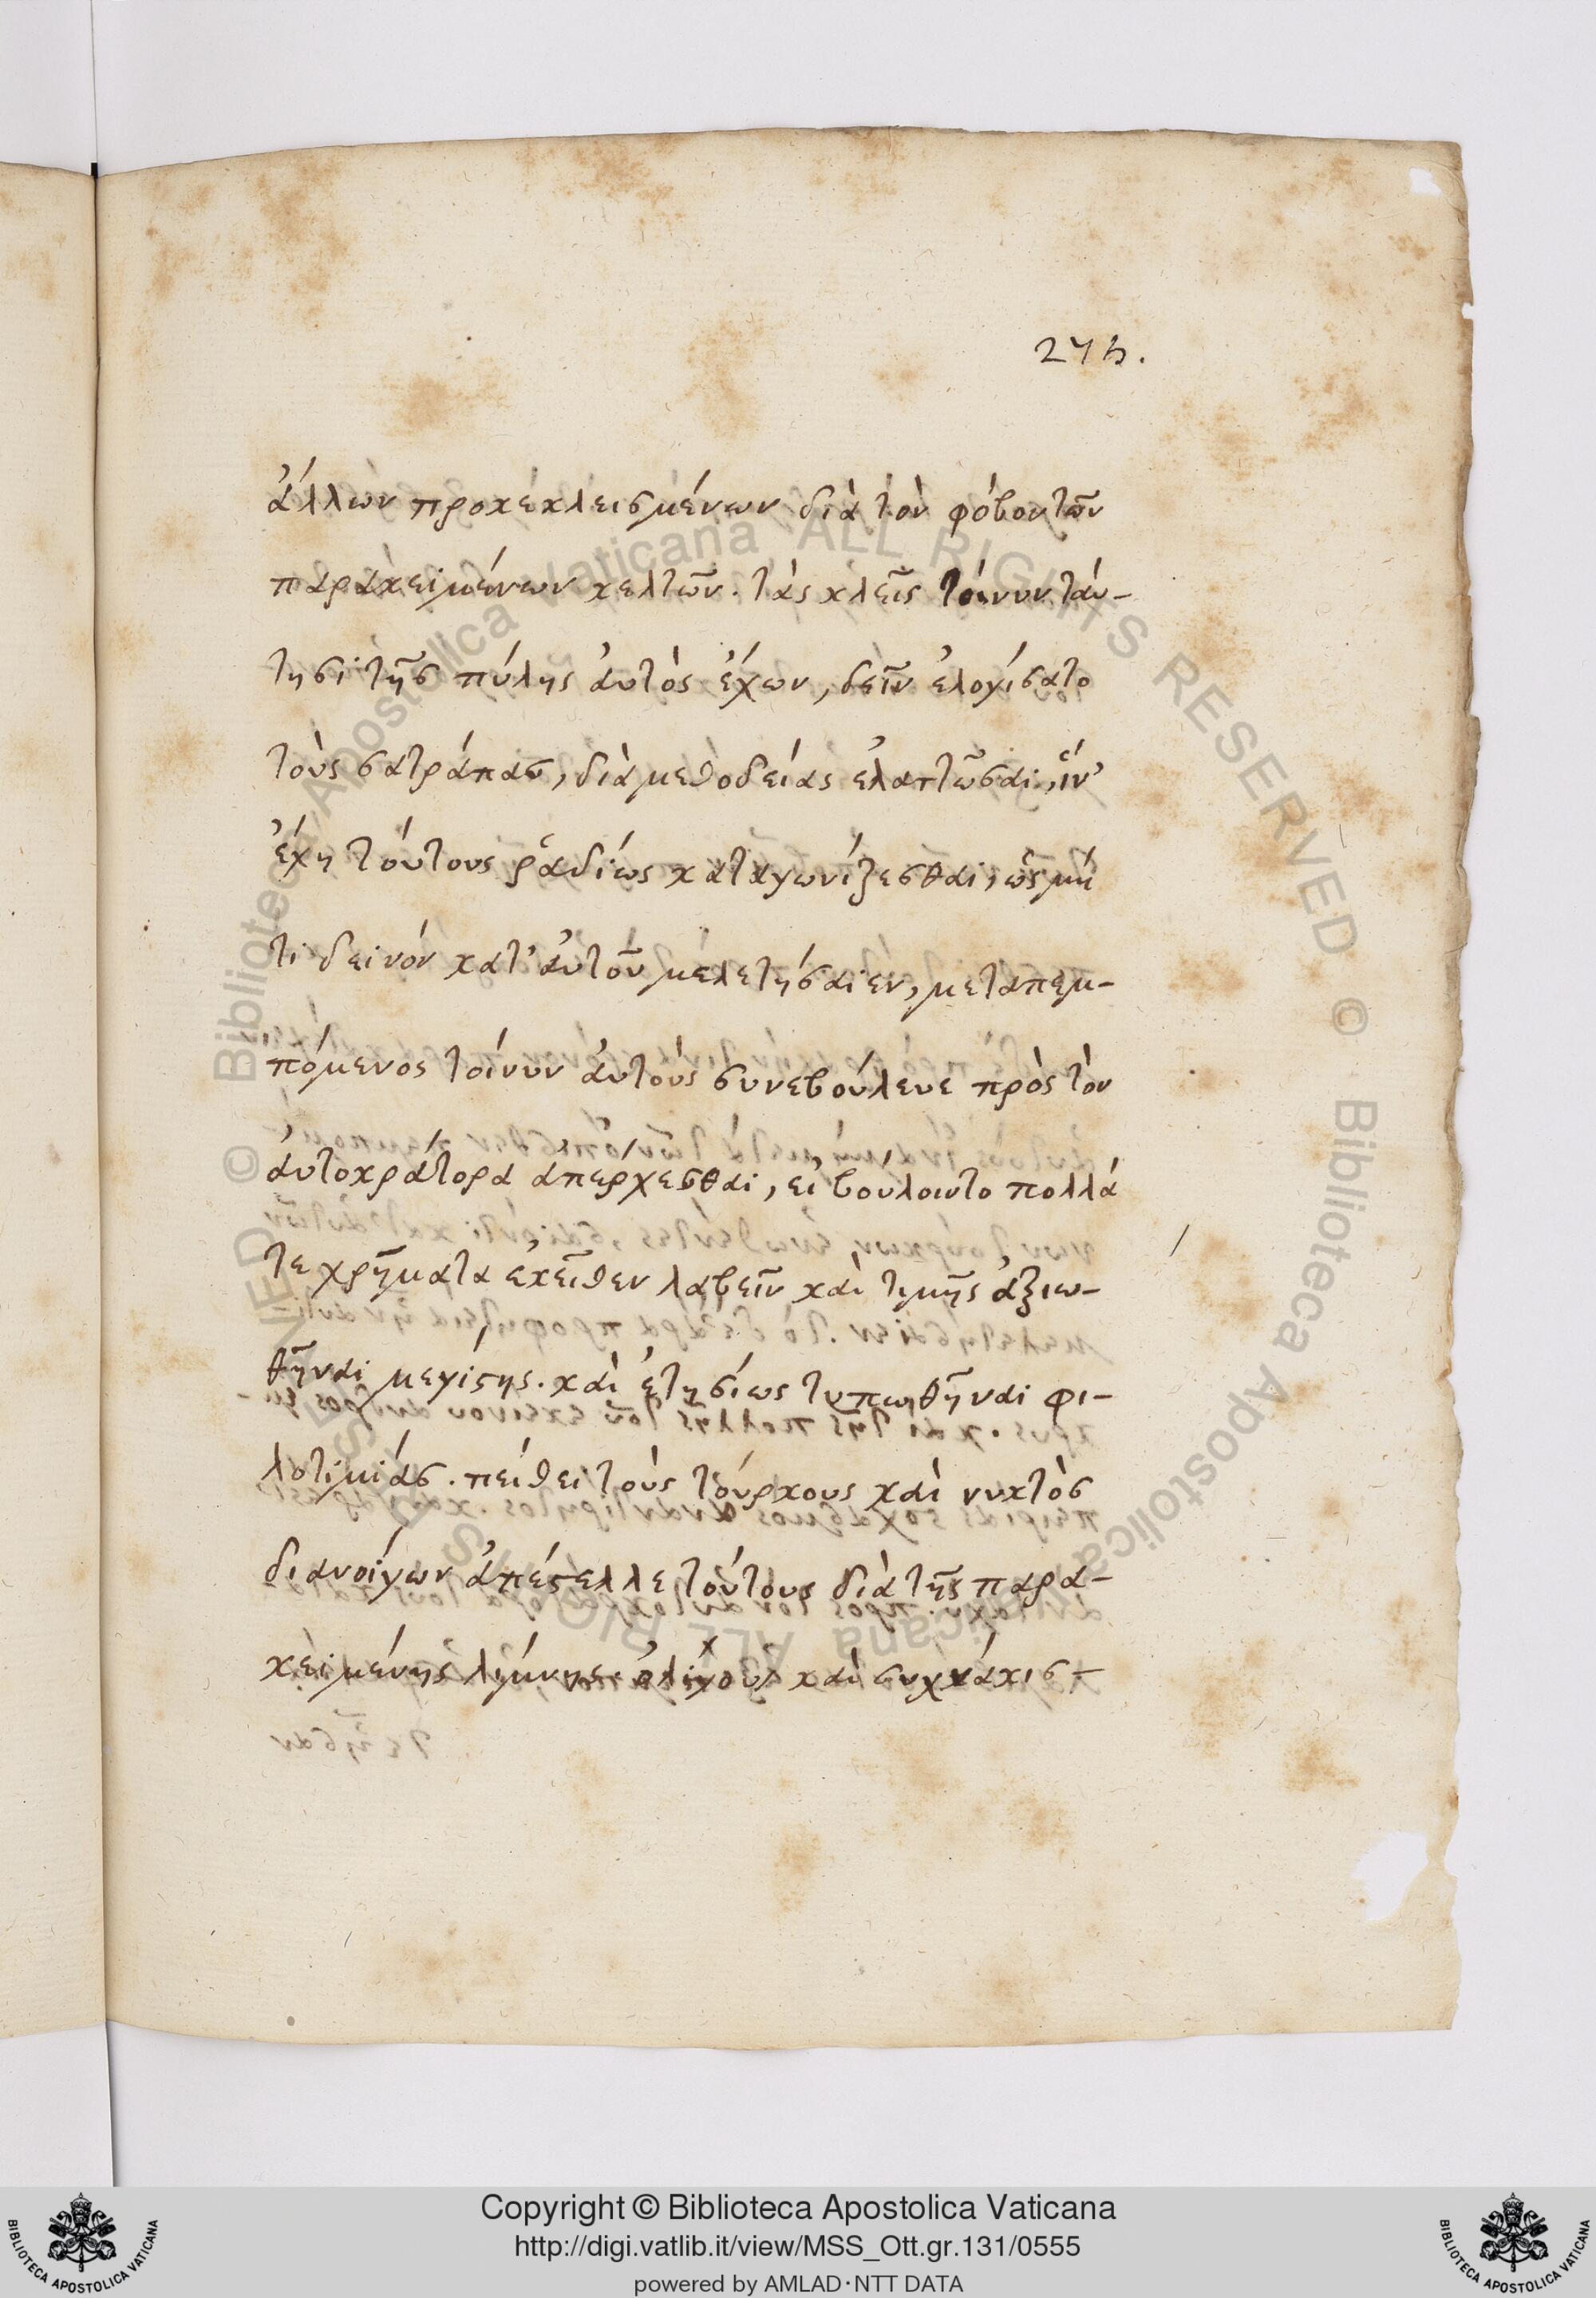 275.
ἄλλων προκεκλεισμένων διὰ τὸν φόβον τῶν
παρακειμένων κελτῶν. τὰς κλεῖς τοίνυν ταύ-
τησι τῆς πύλης ἀυτὸς ἔχων, δεῖν ἐλογίσατο
τοὺς σατράπας, διὰ μεθοδείας ἐλαττῶσαι, ἵν'
ἔχη τόυτους ῥαδίως καταγωνίζεσθαι, ὡς μή
τι δεινὸν κατ' ἀυτοῦ μελετήσαιεν, μεταπεμ-
πόμενος τοίνυν ἀυτοὺς συνεβούλευε πρὸς τὸν
ἀυτοκράτορα ἀπέρχεσθαι, εἰ βουλοιντο πολλά
τε χρῆματα ἐκεῖθεν λαβεῖν καὶ τιμῆς ἀξιω-
θῆναι μεγίστης. καὶ ἐτησίως τυπωθῆναι φι-
λοτιμίας. πείθει τοὺς τούρκους καὶ νυκτὸς
διανοίγων ἀπέστελλε τόυτους διὰ τῆς παρα-
κειμένης λίμνης ὀλίγους καὶ συχνάκις-
Copyright © Biblioteca Apostolica Vaticana
http://digi.vatlib.it/view/MSS_Ott.gr.131/0555
powered by AMLAD·NTT DATA